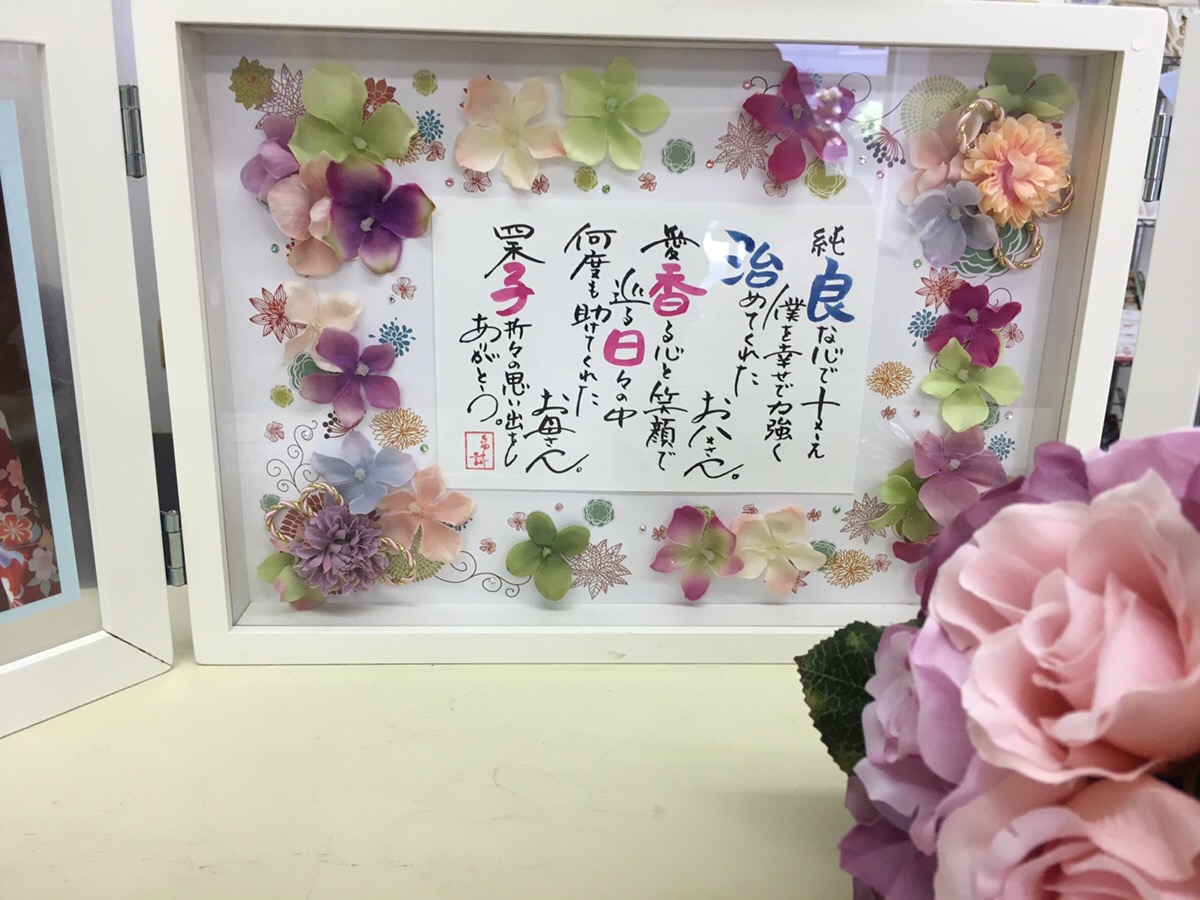 純良な心で支え
僕を幸せで力強く
治めてくれた
お父さん。
愛香る心と笑顔で
巡る日々の中
何度も助けてくれた
お母さん。
四季折々の思い出を
ありがとう。